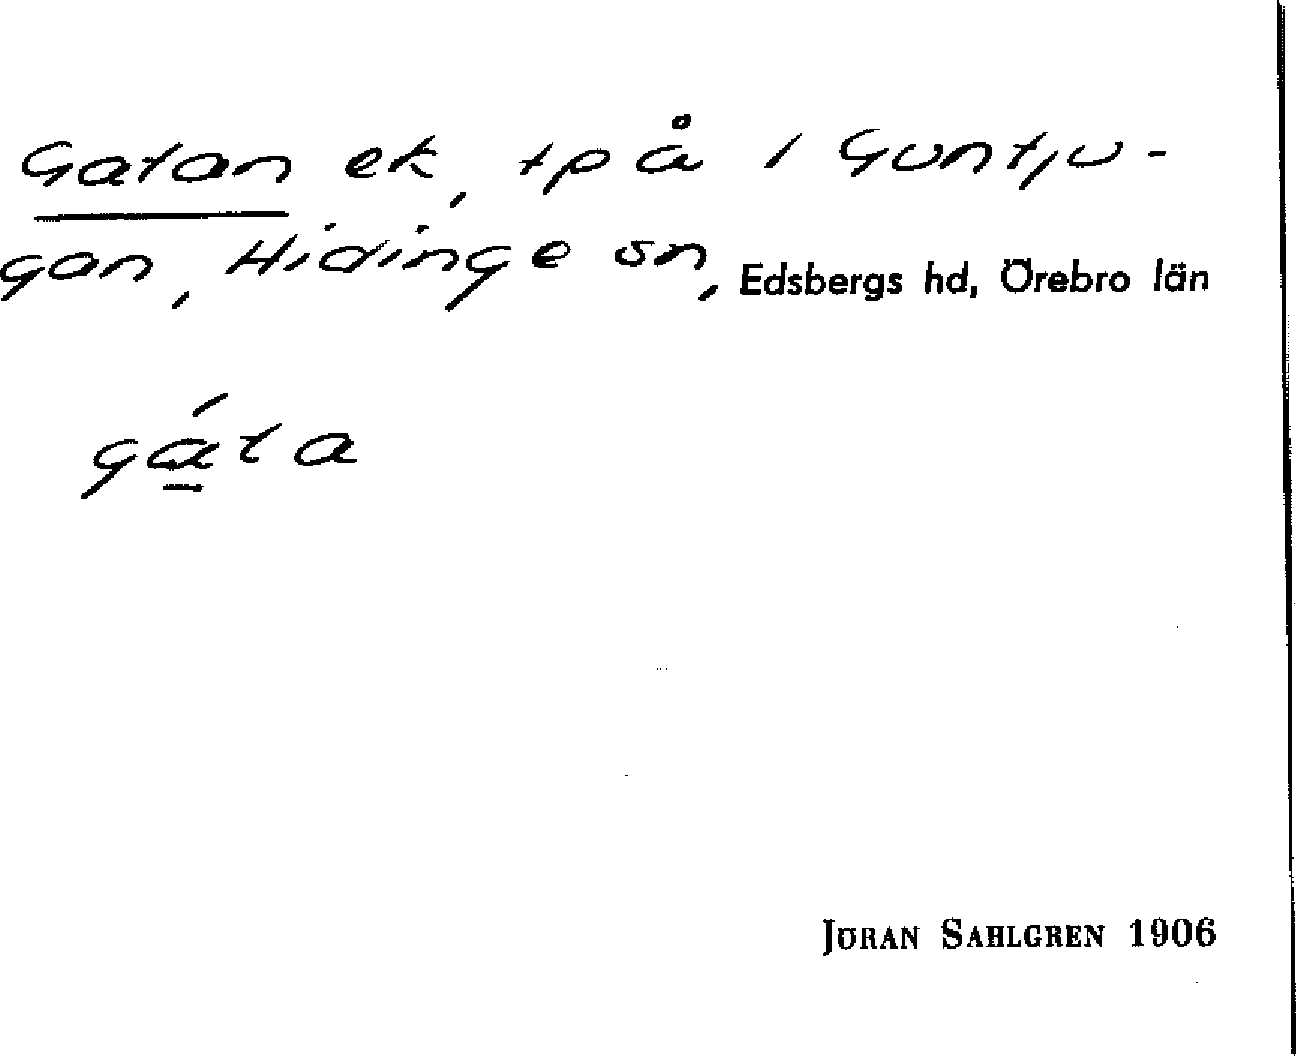 Gatan ek, tp å 1 Guntju-
gan, Hidinge sn, Edsbergs hd, Örebro län
gá̱ta
JÖRAN SAHLGREN 1906